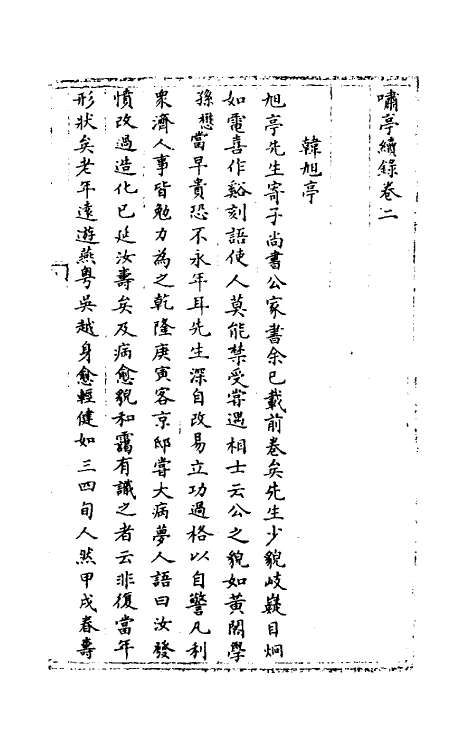 嘯亭續錄卷二
韓旭亭
旭亭先生寄子尚書公家書余已載前卷矣先生少貌岐嶷目炯
如電喜作谿刻語使人莫能禁受嘗遇相士云公之貌如黃閣學
孫懋當早貴恐不永年耳先生深自改易立功過格以自警凡利
衆濟人事皆勉力為之乾隆庚寅客京邸嘗大病夢人語曰汝發
憤改過造化已延汝壽矣及病愈貌和靄有識之者云非復當年
形狀矣老年遠遊燕粵吳越身愈輕健如三四旬人然甲戌春壽